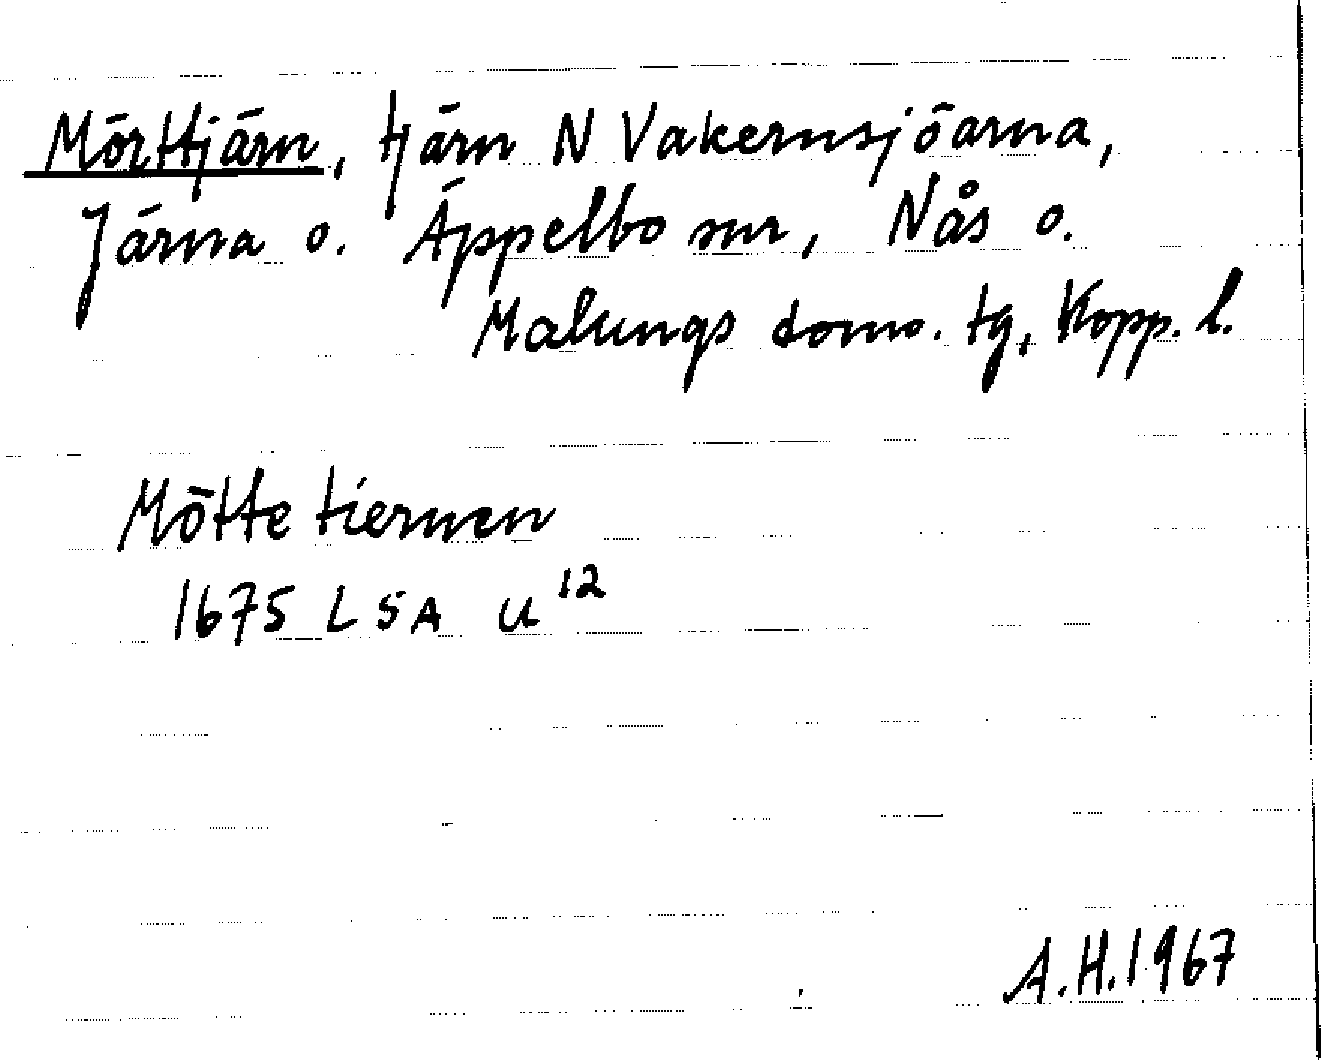 Mörttjärn, tjärn N Vakernsjöarna,
Järna o. Äppelbo snr, Nås o.
Malungs doms. tg, Kopp. l.
Mötte tiernen
1675 LSA U 12
A.H. 1967